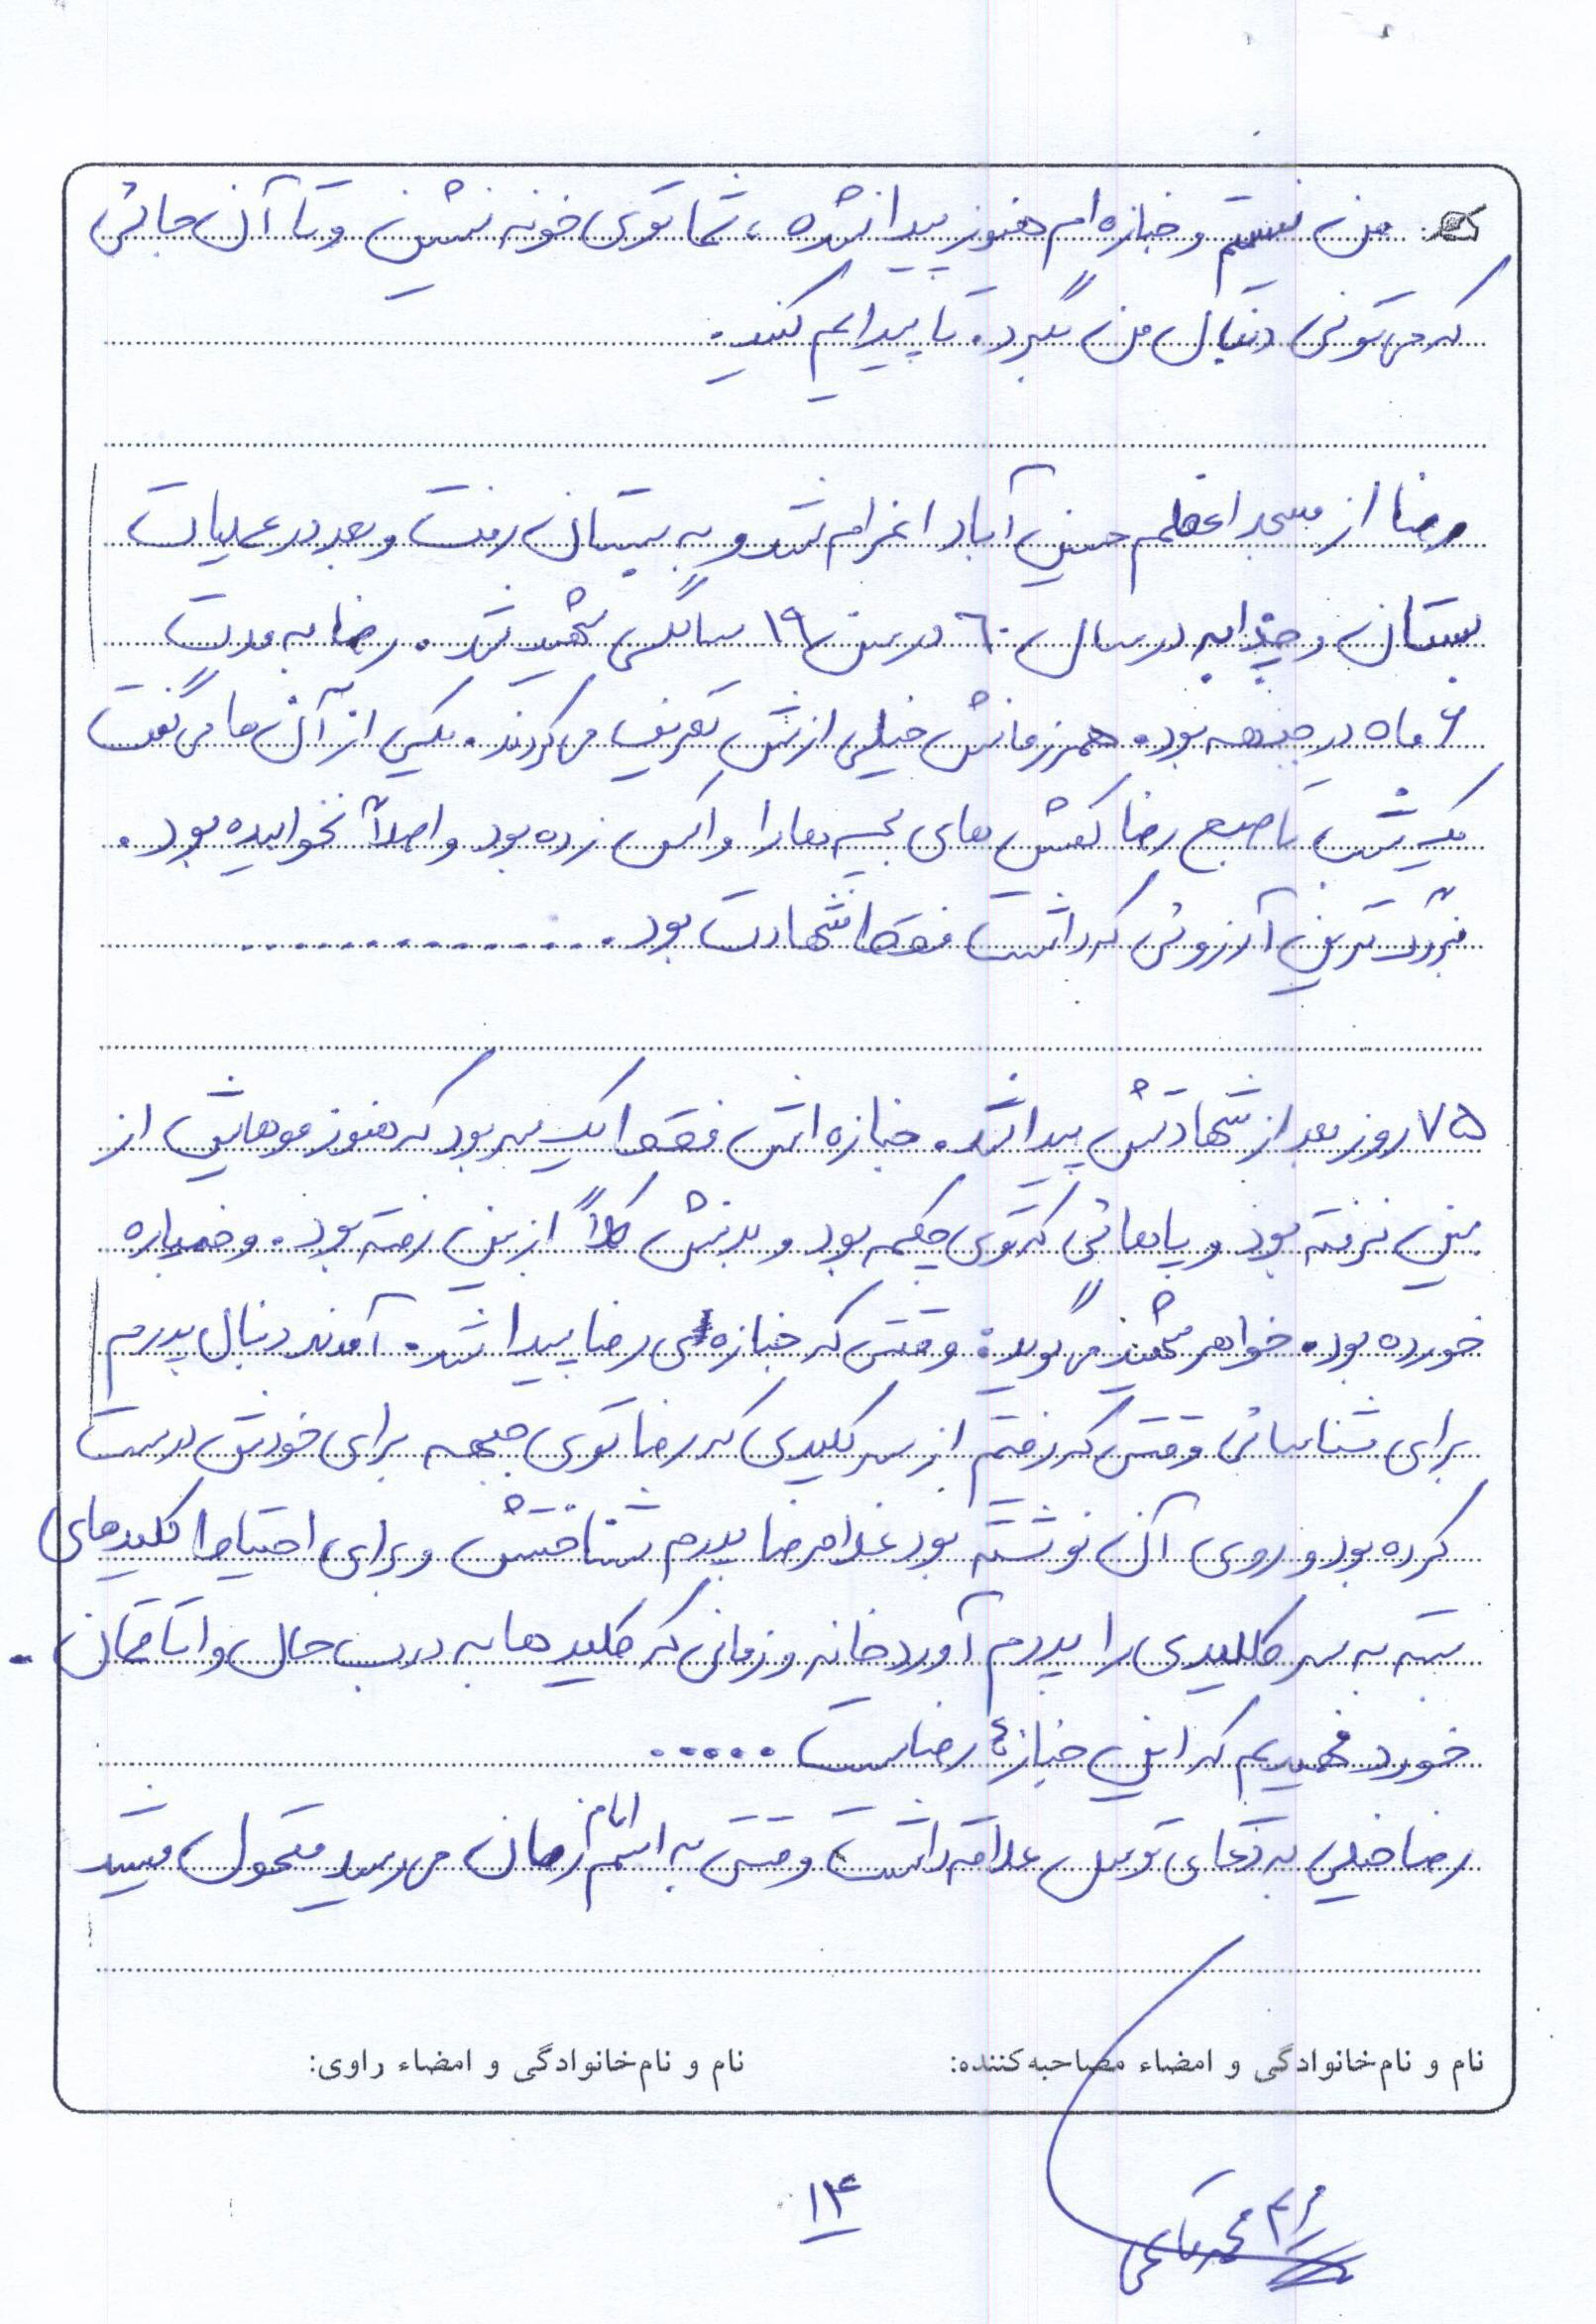 من نیستم و جنازه ام هنوز پیدا نشده ، شما توی خونه نشین و تا آن جائی
که می تونی دنبال من بگرد. تا پیدایم کنید.
رضا از مسجد اعظم حسین آباد اعزام شد و به بستان رفت و بعد در عملیات
بستان و چزابه در سال ٦٠ در سن ۱۹ سالگی شهید شد. رضا به مدت
۶ ماه در جبهه بود. همرزمانش خیلی ازش تعریف می کردند. یکی از آن ها می گفت
یک شب تا صبح رضا کفش های بچه ها را واکس زده بود و اصلاً نخوابیده بود.
بزرگ ترین آرزوئی که داشت فقط شهادت بود...............
۷۵ روز بعد از شهادتش پیدا شد. جنازه اش فقط یک سر بود که هنوز موهایش از
بین نرفته بود و پاهائی که توی چکمه بود و بدنش کلاً از بین رفته بود. و خمپاره
خورده بود. خواهر شهید می گوید: وقتی که جنازه ی رضا پیدا شد. آمدند دنبال پدرم
برای شناسائی وقتی که رفتم از سر کلیدی که رضا توی جبهه برای خودش درست
کرده بود و روی آن نوشته بود غلامرضا پدرم شناختش و برای احتیاط کلیدهای
بسته به سر کلیدی را پدرم آورد خانه و زمانی که کلید ها به درب حال و اتاقمان
خورد فهمیدیم که این جنازۀ رضاست .....
رضا خیلی به دعای توسل علاقه داشت وقتی به اسم امام زمان می رسید متحول میشد
نام و نام‌خانوادگی و امضاء مصاحبه‌کننده:
نام و نام‌خانوادگی و امضاء راوی:
۱۴